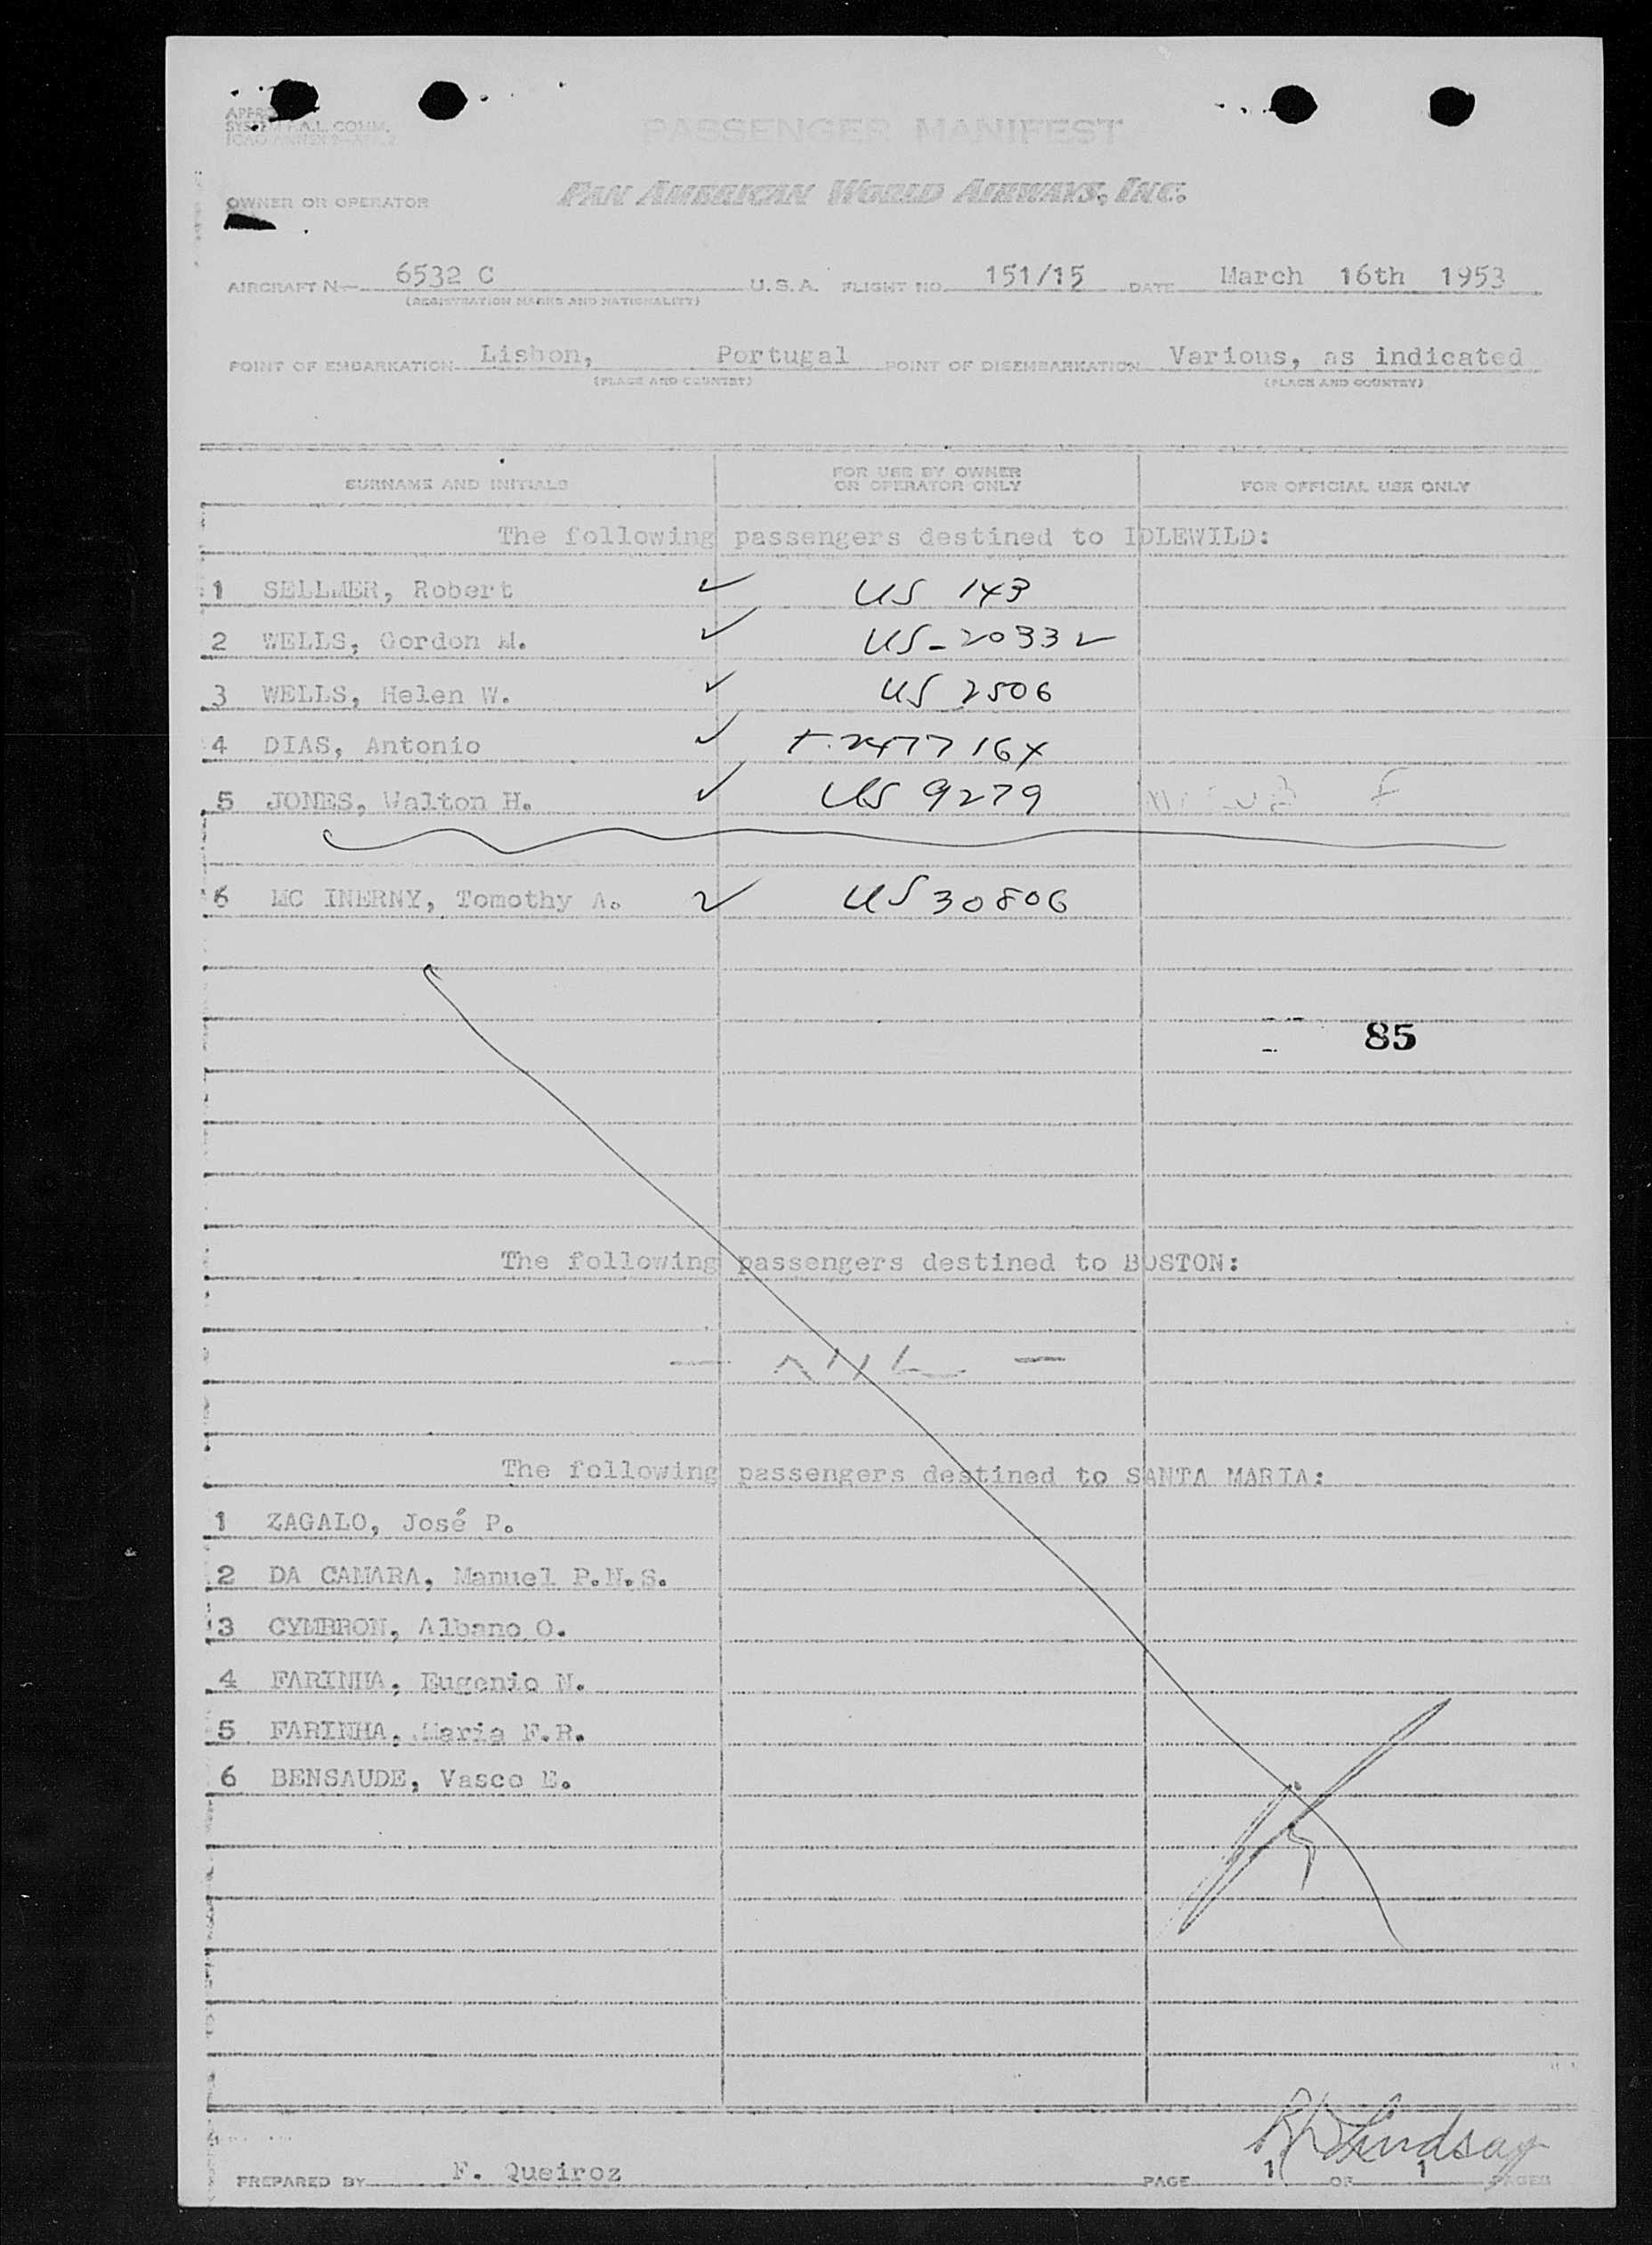 SYSTEM F.A.L. COMM.
PASSENGER MANIFEST
OWNER OR OPERATOR PAN AMERICAN WORLD AIRWAYS, INC.
AIRCRAFT N— 6532 C U.S.A. FLIGHT NO. 151/15 DATE March 16th 1953
(REGISTRATION MARKS AND NATIONALITY)
POINT OF EMBARKATION Lisbon, Portugal POINT OF DISEMBARKATION Various, as indicated
(PLACE AND COUNTRY) (PLACE AND COUNTRY)
SURNAME AND INITIALS FOR USE BY OWNER OR OPERATOR ONLY FOR OFFICIAL USE ONLY
The following passengers destined to IDLEWILD:
1 SELLMER, Robert ✓ US 143
2 WELLS, Gordon M. ✓ US-20332
3 WELLS, Helen W. ✓ US 2506
4 DIAS, Antonio ✓
5 JONES, Walton H. ✓ US 9279
6 MC INERNY, Tomothy A. ✓ US 30806
85
The following passengers destined to BOSTON:
— NIL —
The following passengers destined to SANTA MARIA:
1 ZAGALO, José P.
2 DA CAMARA, Manuel P.N.S.
3 CYMBRON, Albano O.
4 FARINHA, Eugenio N.
5 FARINHA, Maria F.R.
6 BENSAUDE, Vasco E.
Lindsay
PREPARED BY F. Queiroz PAGE 1 OF 1 PAGES